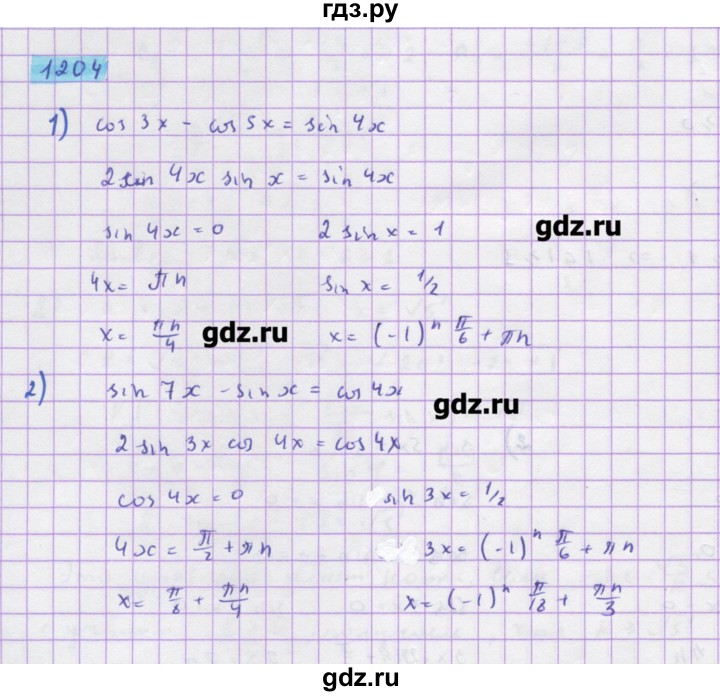 гдз.ру
1204
1) cos 3x - cos 5x = sin 4x
2 sin 4x sin x = sin 4x
sin 4x = 0 2 sin x = 1
gdz.ru
4x = πn sin x = 1/2
x = πn/4 gdz.ru x = (-1)^n π/6 + πn
2) sin 7x - sin x = cos 4x
gdz.ru
2 sin 3x cos 4x = cos 4x
cos 4x = 0 sin 3x = 1/2
4x = π/2 + πn 3x = (-1)^n π/6 + πn
x = π/8 + πn/4 x = (-1)^n π/18 + πn/3
гдз.ру